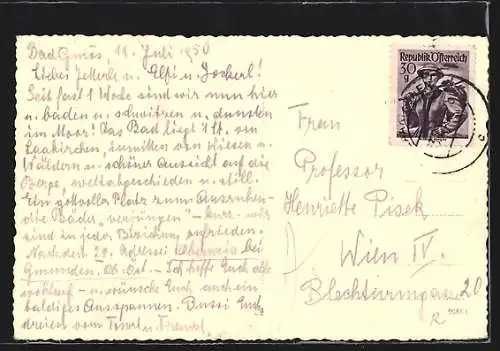 Bad Gmös, 11. Juli 1950
Liebes u. Elfi u. Jockerl!
Seit fast 1 Woche sind wir nun hier
u. baden u. schwitzen u. dunsten
im Moor! Das Bad liegt 1 St. von
Laakirchen, inmitten von Wiesen u.
Wäldern u. schöner Aussicht auf die
Berge, weltabgeschieden u. still.
Ein gottvoller Platz zum Ausruhen-
die Bäder "verjüngen" - kurz - wir
sind in jeder Beziehung zufrieden.
Nach dem 20. Adresse: Ohlsweis bei
Gmunden, Ob. Öst. - Ich hoffe Euch alle
wohlauf - u. wünsche Euch auch ein
baldiges Ausspannen. Bussi Euch
dreien vom u.
Republik Österreich
30
Frau
Professor
Henriette Pisek
Wien IV.
Blechturmgasse 20